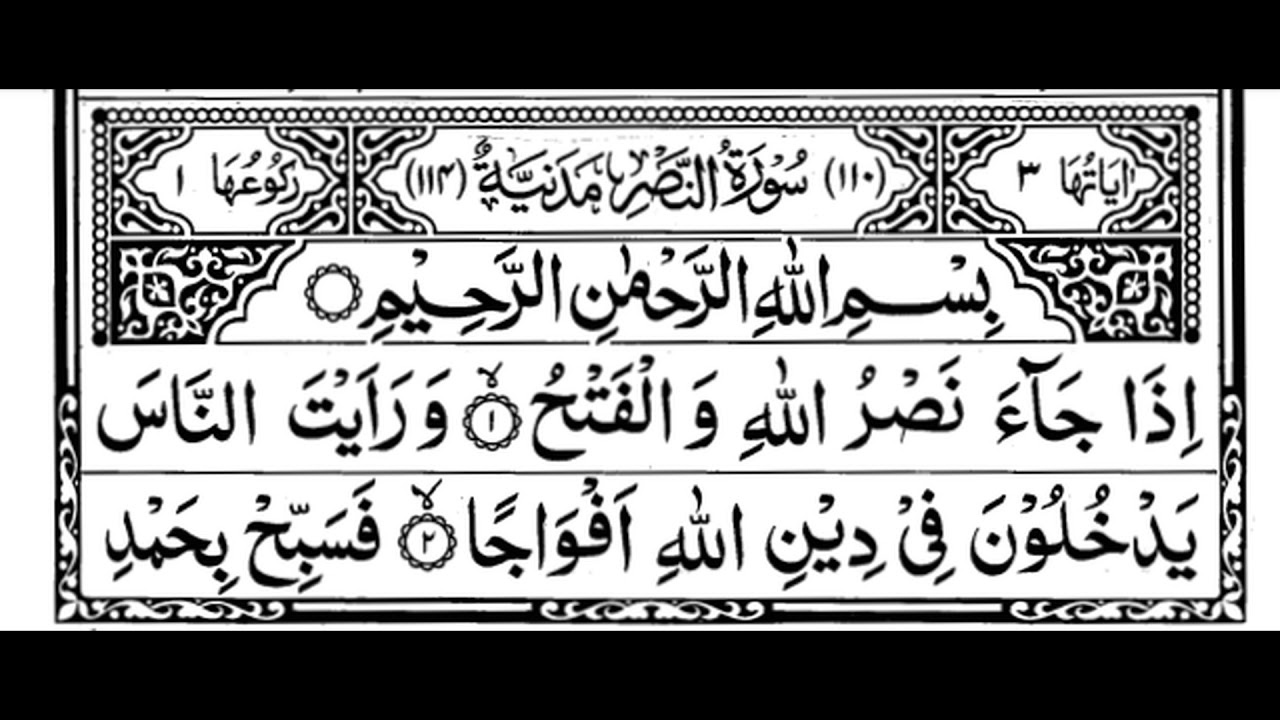 اٰيَاتُهَا ٣ (١١٠) سُوْرَةُ النَّصْرِ مَدَنِيَّةٌ (١١٤) رُكُوْعُهَا ١
بِسْمِ اللّٰهِ الرَّحْمٰنِ الرَّحِيْمِ
اِذَا جَآءَ نَصْرُ اللّٰهِ وَ الْفَتْحُ ۙ‏ ١ وَ رَاَيْتَ النَّاسَ
يَدْخُلُوْنَ فِيْ دِيْنِ اللّٰهِ اَفْوَاجًا ۙ‏ ٢ فَسَبِّحْ بِحَمْدِ